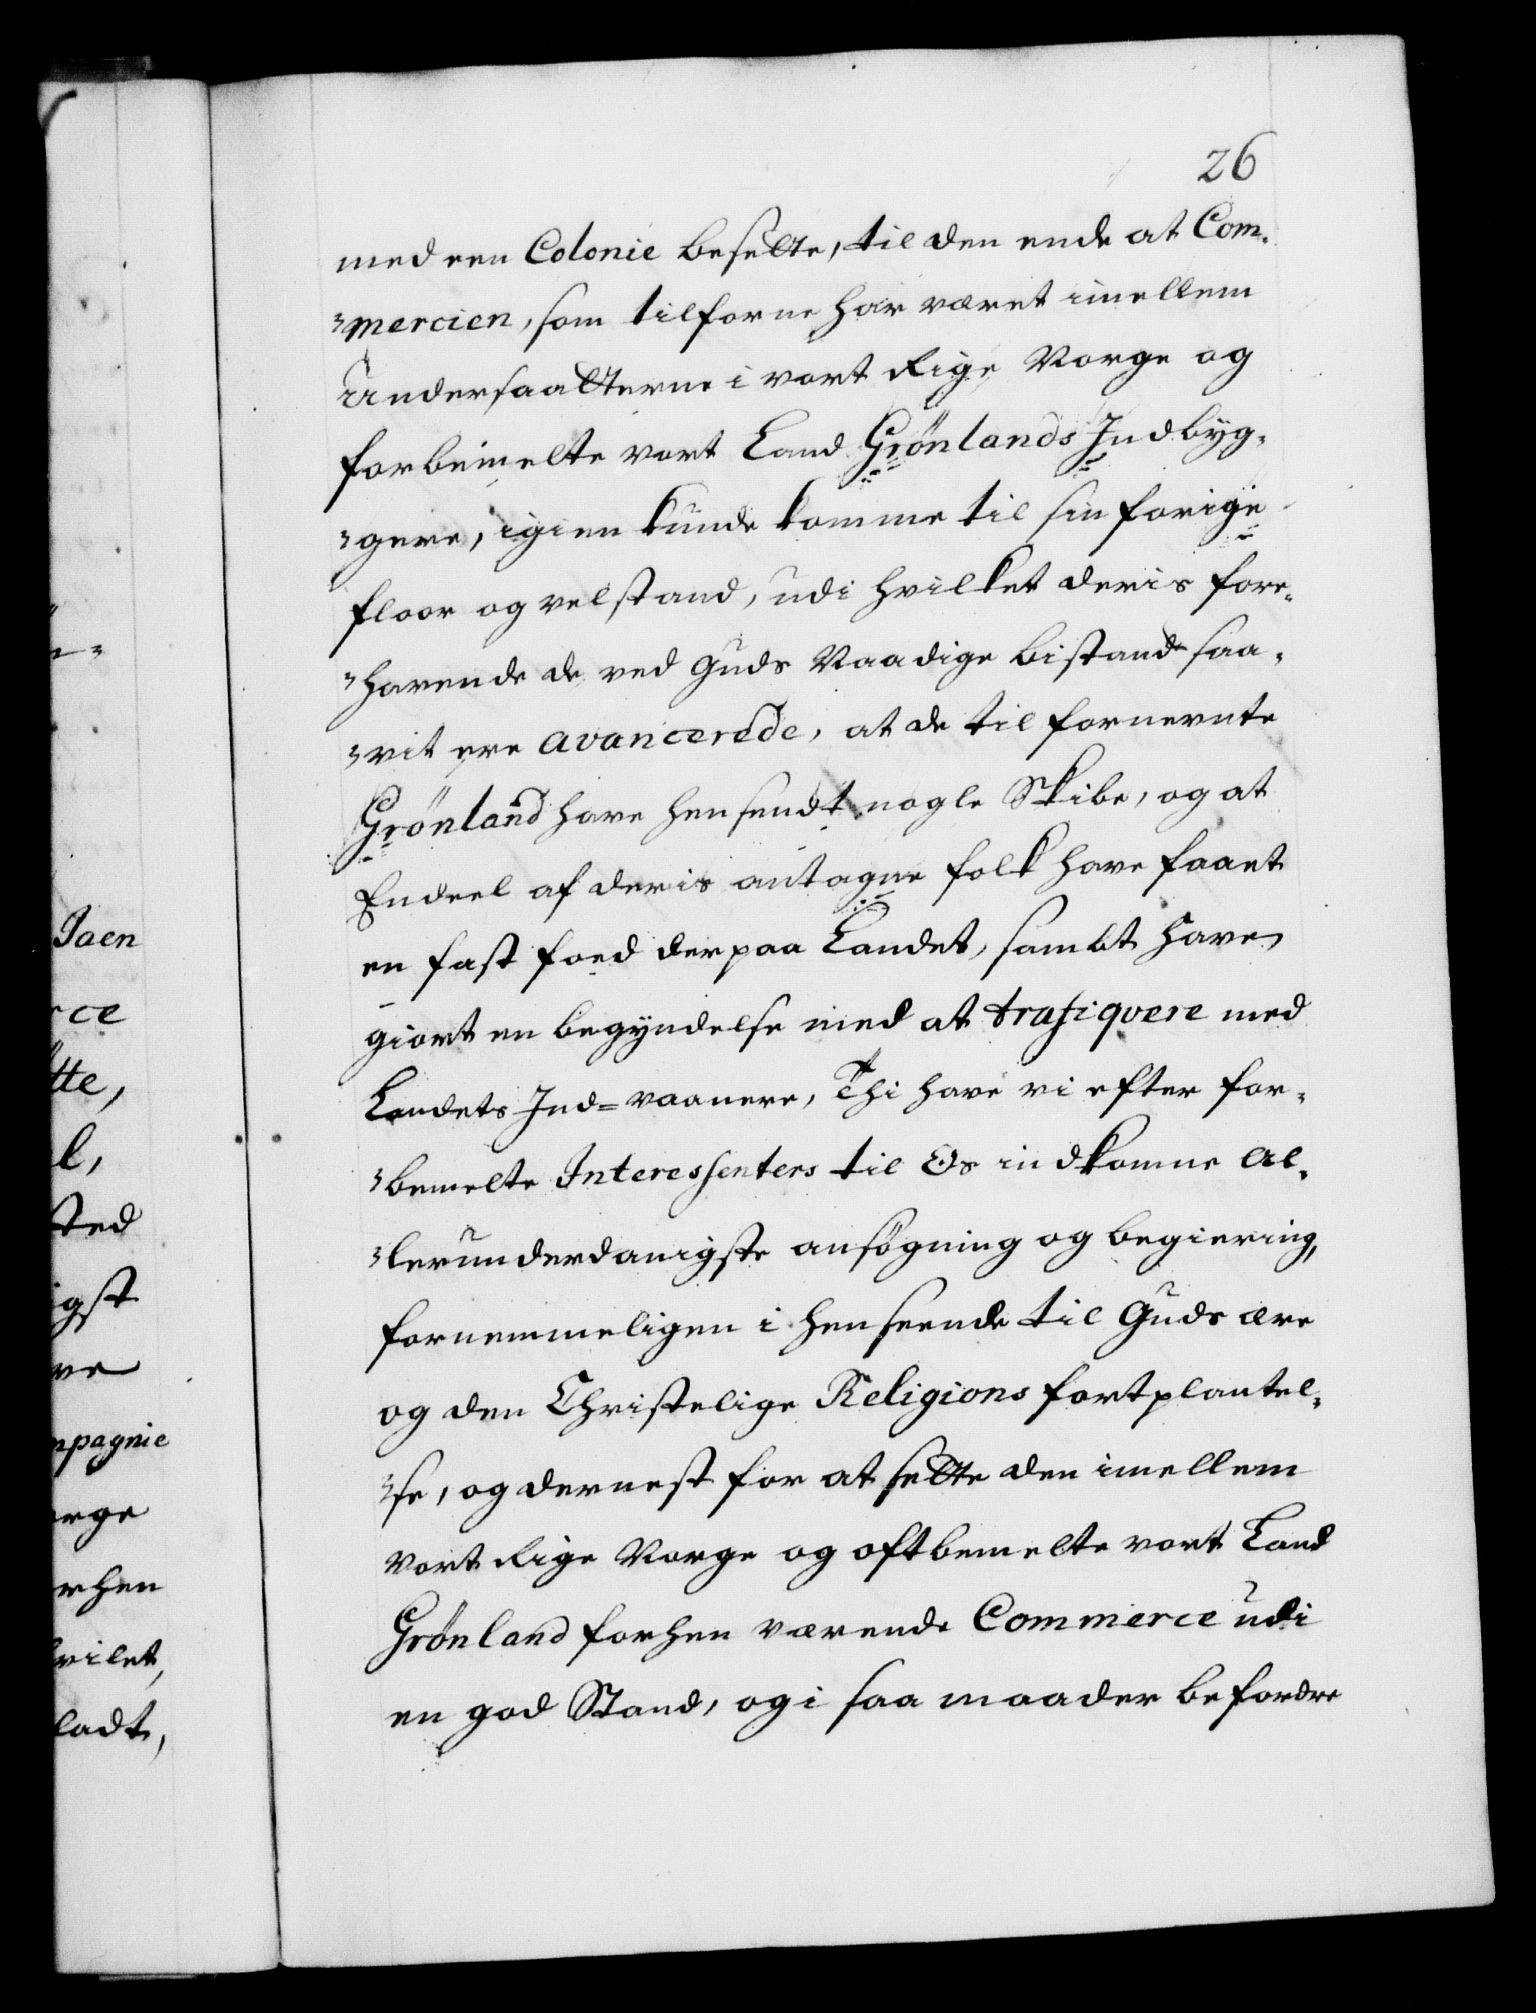 26
med een Colonie besette, til den ende at Com-
-mercien, som tilforne har været imellem
Undersaatterne i vort Rige Norge og
forbemelte vort Land Grönlands Indbyg-
-gere, igien kunde komme til sin forige
floor og velstand, udi hvilket deris fore-
-havende de ved Guds Naadige bistand saa-
-vit ere avancerede, at de til fornevnte
Grönland have hensendt nogle Skibe, og at
Endeel af deris antagne folk have faaet
en fast foed der paa Landet, sambt have
giort en begyndelse med at trafiqvere med
Landets Ind=vaanere, Thi have vi efter for-
-bemelte Interessenters til Os indkomne al-
-lerunderdanigste ansögning og begiering,
fornemmeligen i henseende til Guds ære
og den Christelige Religions fortplantel-
-se, og dernest for at sette den imellem
vort Rige Norge og oftbemelte vort Land
Grönland forhen værende Commerce udi
en god Stand, og i saa maader befordre
Jaen
rce
tte,
l,
sted
igst
ve
mpagnie
orge
rhen
hvilet,
ladt,